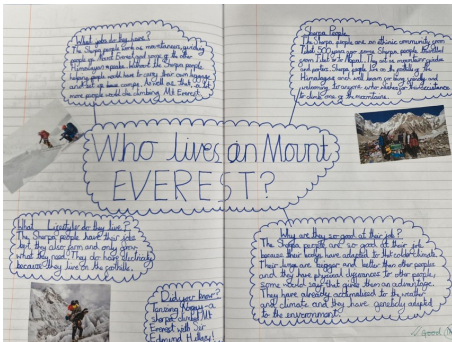 What jobs do they have?
The Sherpa people work as mountaineers, guiding
people up Mount Everest and some of the other
Himalayan peaks. Without the Sherpa people
helping people would have to carry their own luggage
and set up base camps. As well as that, a lot
more people would die climbing Mt Everest.
Sherpa People
The Sherpa people are an ethnic community from
Tibet. 500 years ago some Sherpa people travelled
from Tibet to Nepal. They act as mountain guides
and porters. Sherpa people live on the foothills of the
Himalayas and are known for being friendly and
welcoming to anyone who wishes for their assistance
to climb one of the mountains.
Who lives on Mount
EVEREST?
What Lifestyle do they live?
The Sherpa people have their jobs
but they also farm and only grow
what they need. They do have electricity
because they live on the foothills.
Did you know?
Tenzing Norgay a
sherpa climbed Mt
Everest with Sir
Edmund Hillary!
Why are they so good at their job?
The Sherpa people are so good at their job
because their bodys have adapted to that colder climate.
Their lungs are bigger and better than other peoples
and they have physical differences to other people,
some would say that gives them an advantage.
They have already acclimatised to the weather
and climate and they have genetically adapted
to the environment.
Good